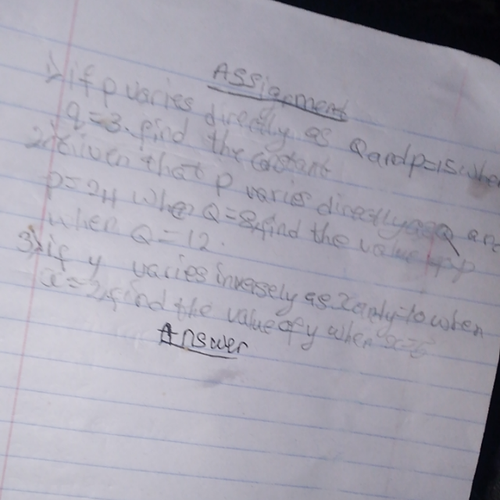 Assignment
1) if p varies directly as Q and p=15 when
q=3. find the constant
2) Given that p varies directly as Q and
p=24 when Q=8, find the value of p
when Q=12.
3) if y varies inversely as x and y=10 when
x=2, find the value of y when x=5
Answer